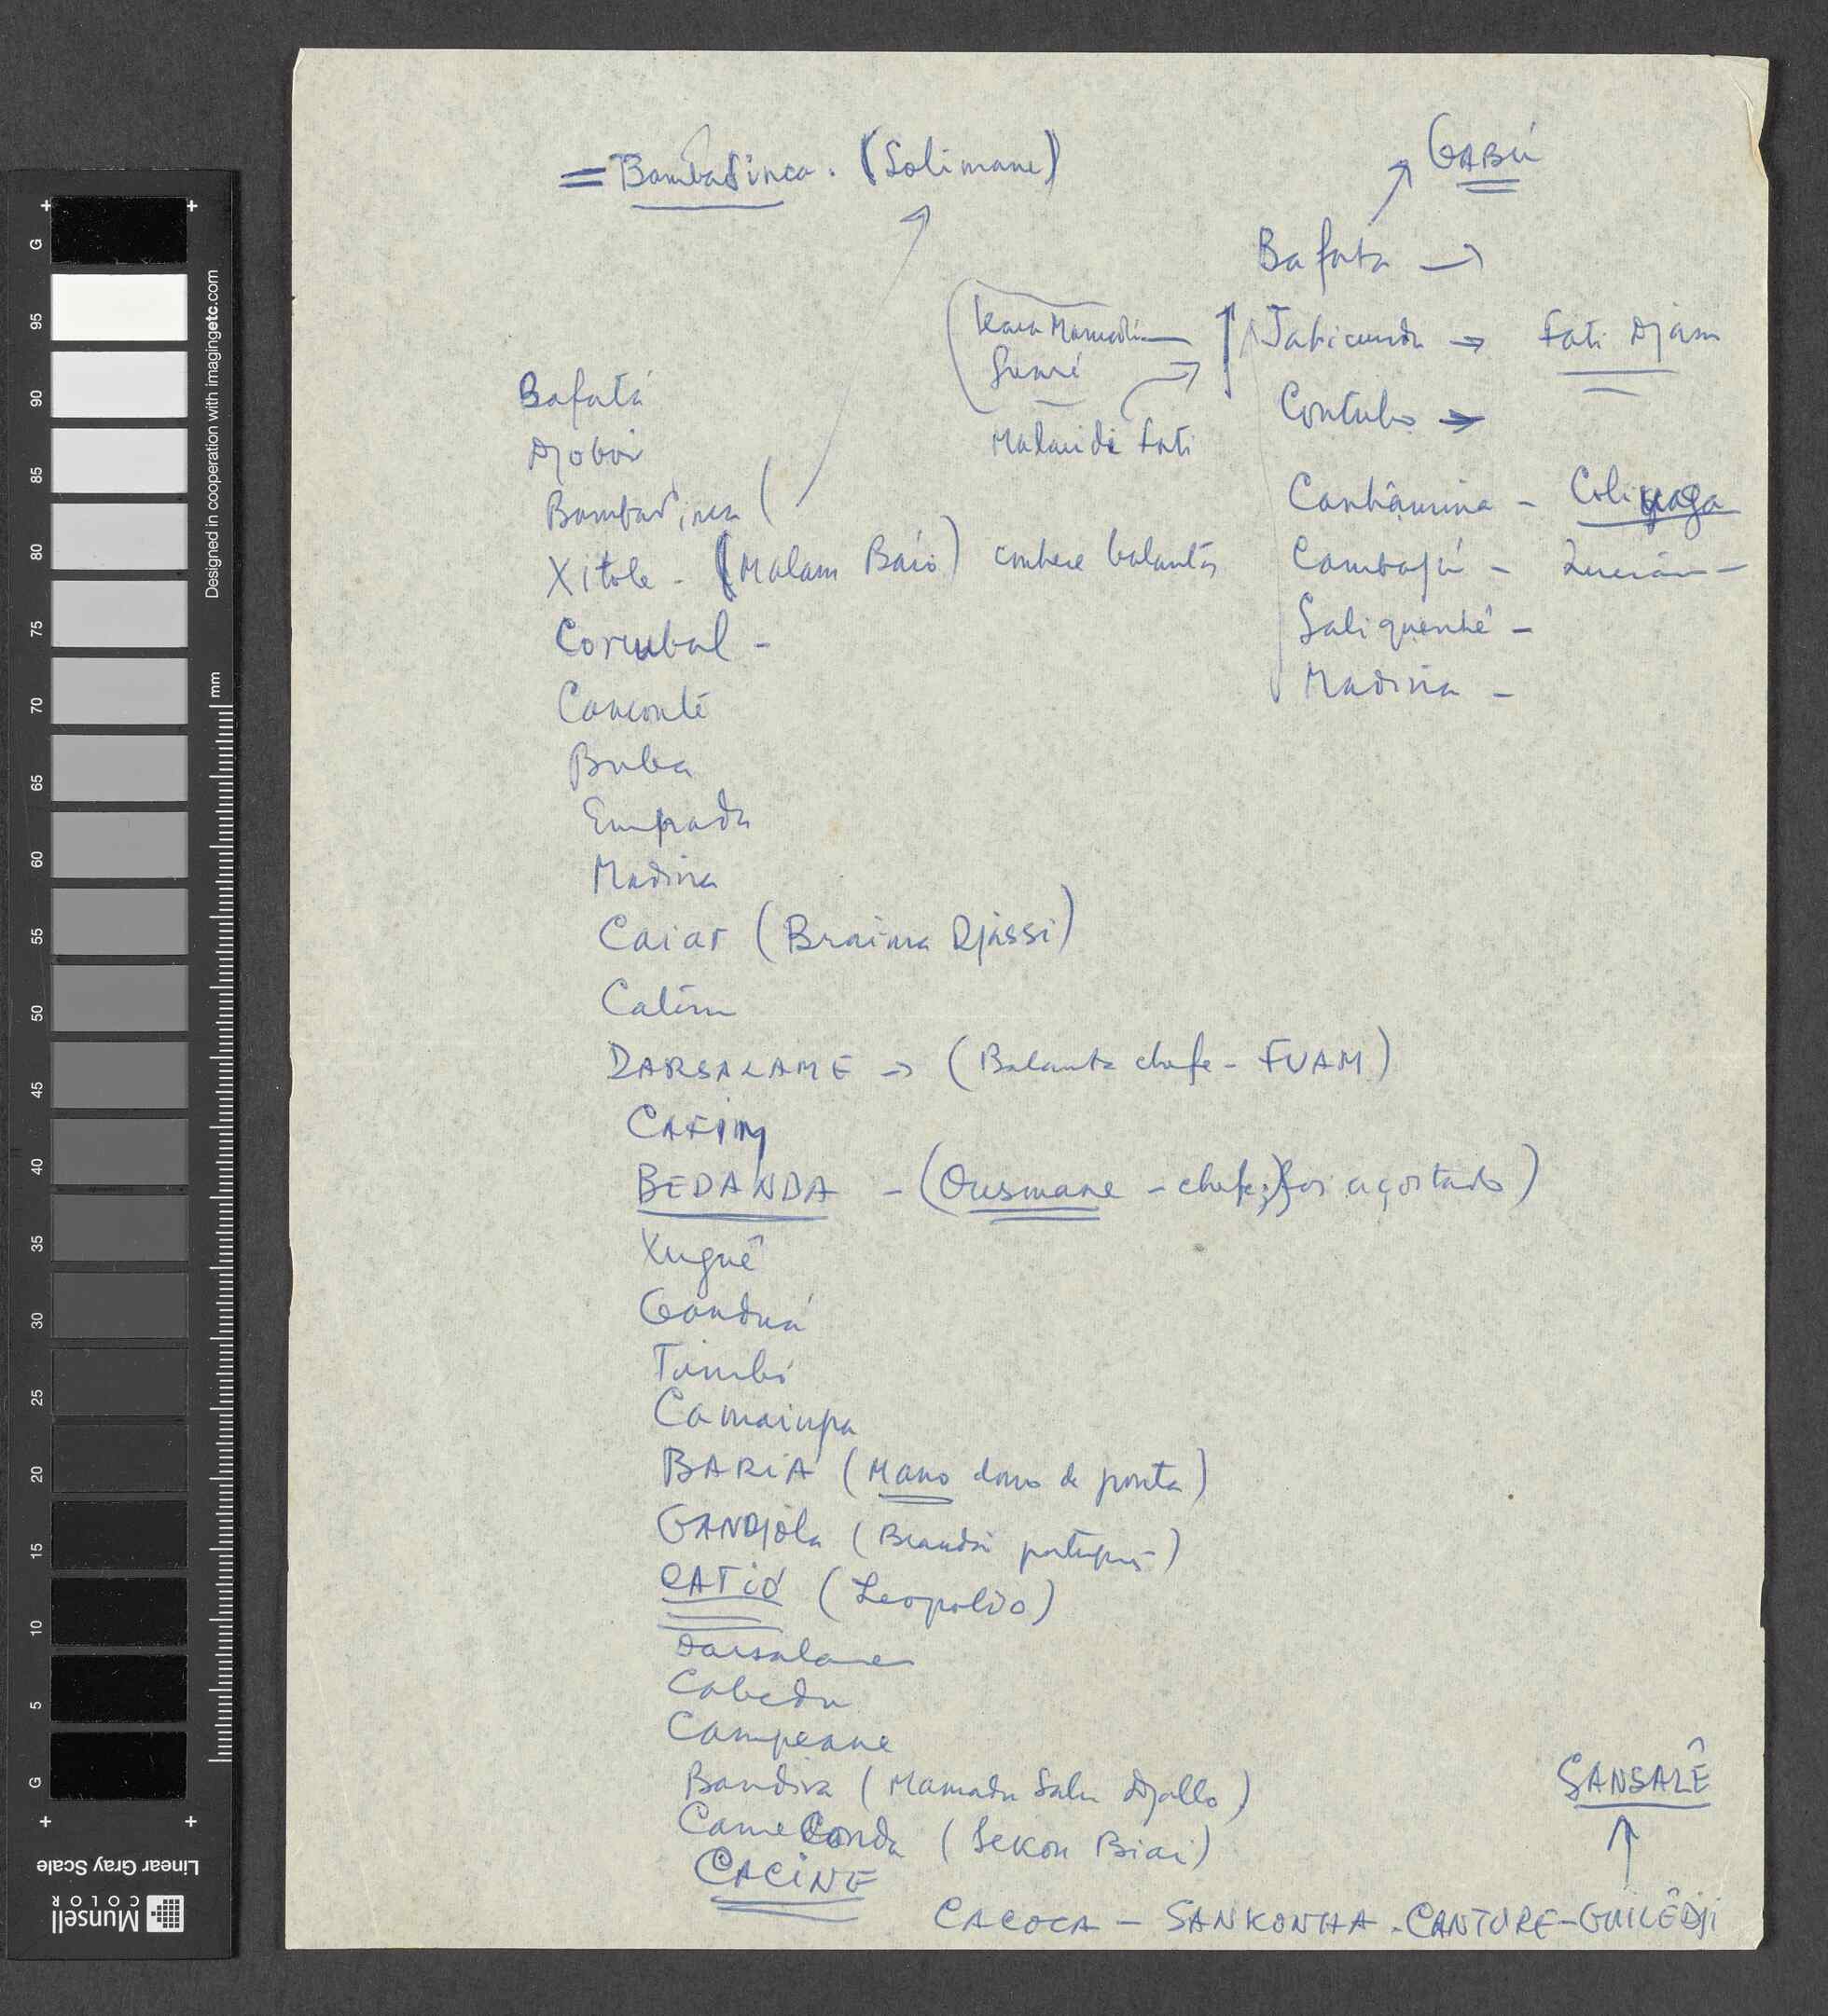 = Bambadinca. (Solimane)
GABÚ
Bafata →
Mamadú
Jabicunda → Fati Djam
Contubo →
Malan di Fati
Canhâmina - Colinaga
Cambajú -
Saliquenhê -
Madina -
Bafatá
Bambadinca (
Xitole - (Malam Baió) conhece balantas
Corubal -
Canconté
Buba
Emprada
Madina
Caiar (Braima Djassi)
DARSALAME → (Balanta chefe - FUAM)
CAFIM
BEDANDA - (Ousmane - chefe; foi açoitado)
Xuguê
Ganduá
Tombó
Camaiupa
BARIÁ (Mano dono de ponta)
GANDJola (Brandão português)
CATIÓ (Leopoldo)
Darsalame
Cabedu
Campeane
Bandira (Mamadu Salu Djallo)
Cameconda (Sekou Biai)
CACINE
SANSALÊ
CACOCA - SANKONHA - CANTURE - GUILÊDJI
5
10
15
20
25
30
35
40
45
50
55
60
65
70
75
80
85
90
95
G
G
mm
Designed in cooperation with imagingetc.com
Linear Gray Scale
Munsell
COLOR